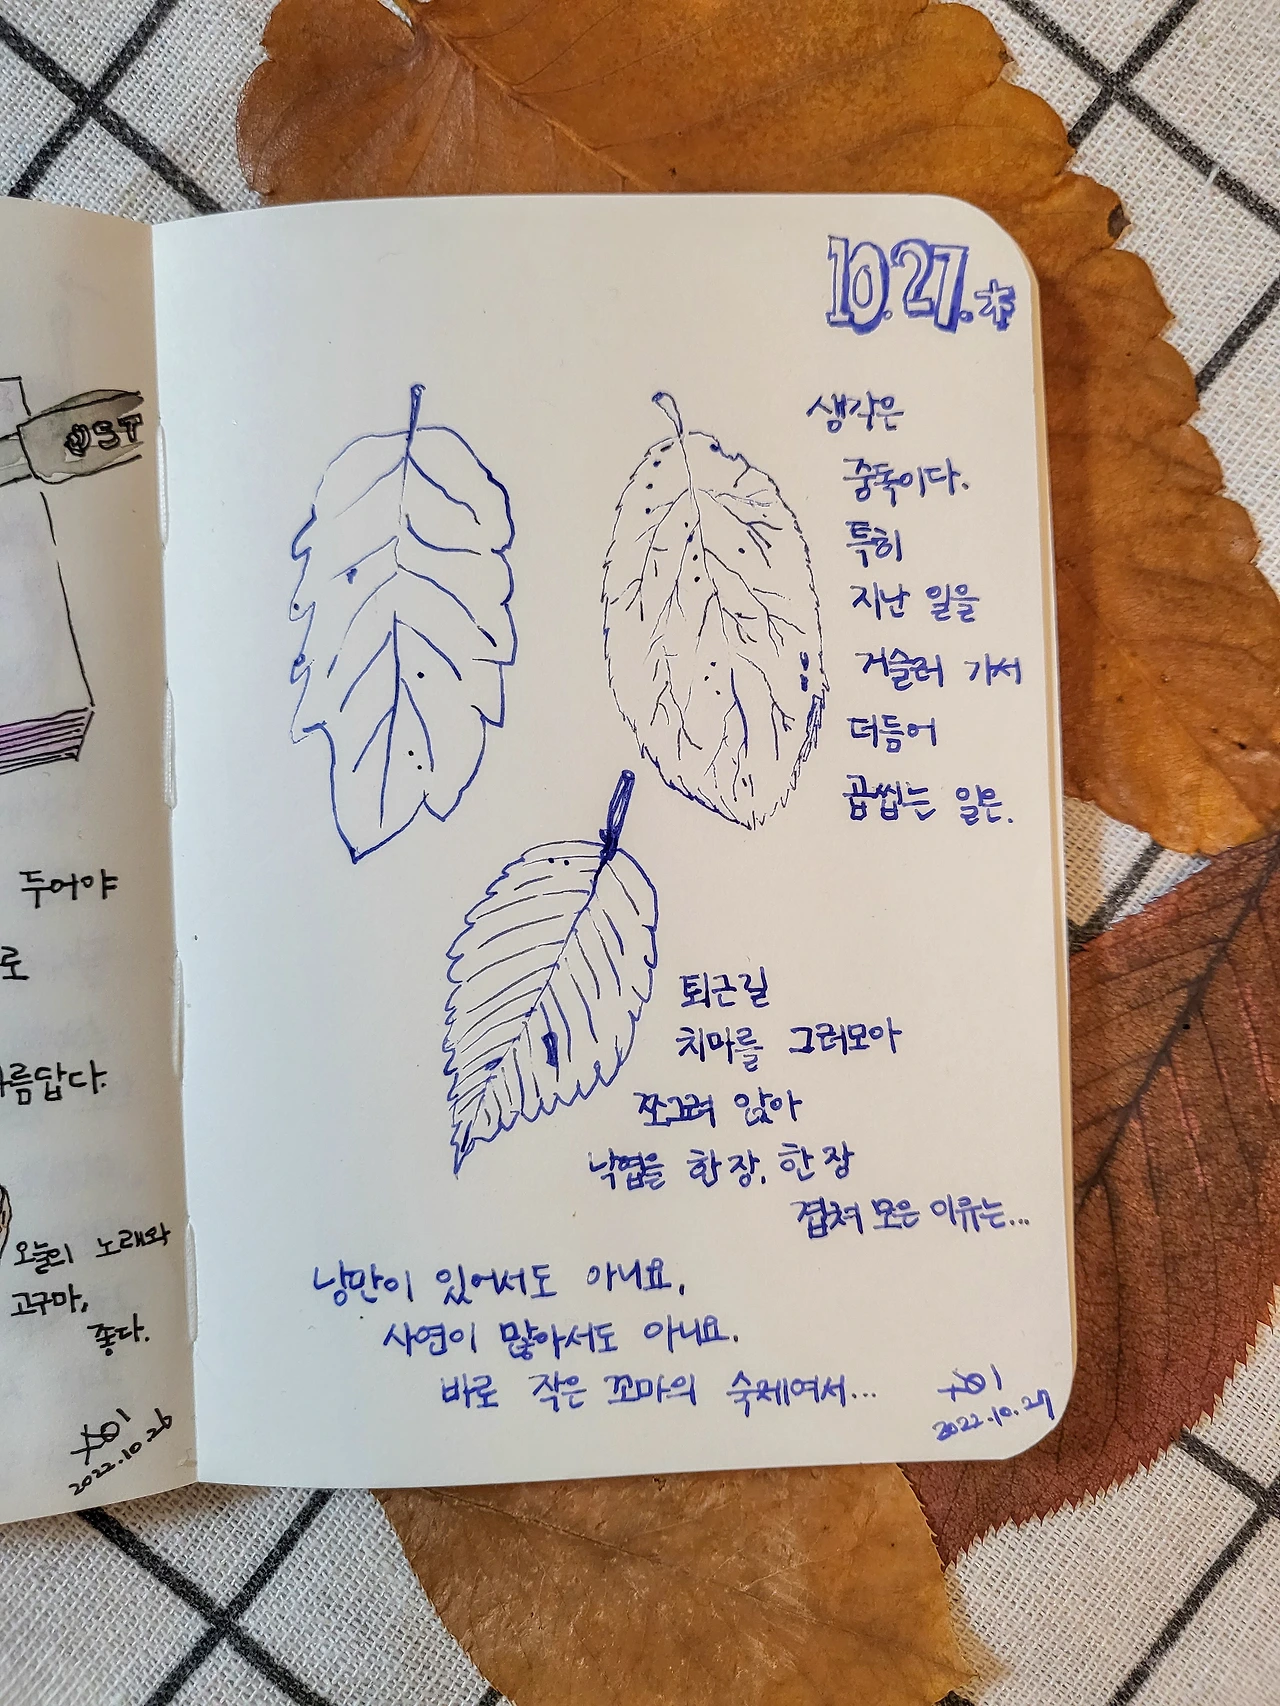 OST
두어야
로
름답다.
오늘의 노래와
고구마,
좋다.
2022.10.26
10.27.木
생각은
중독이다.
특히
지난 일을
거슬러 가서
더듬어
곱씹는 일은.
퇴근길
치마를 그러모아
쪼그려 앉아
낙엽을 한 장, 한 장
겹쳐 모은 이유는...
낭만이 있어서도 아니요,
사연이 많아서도 아니요.
바로 작은 꼬마의 숙제여서...
2022.10.27